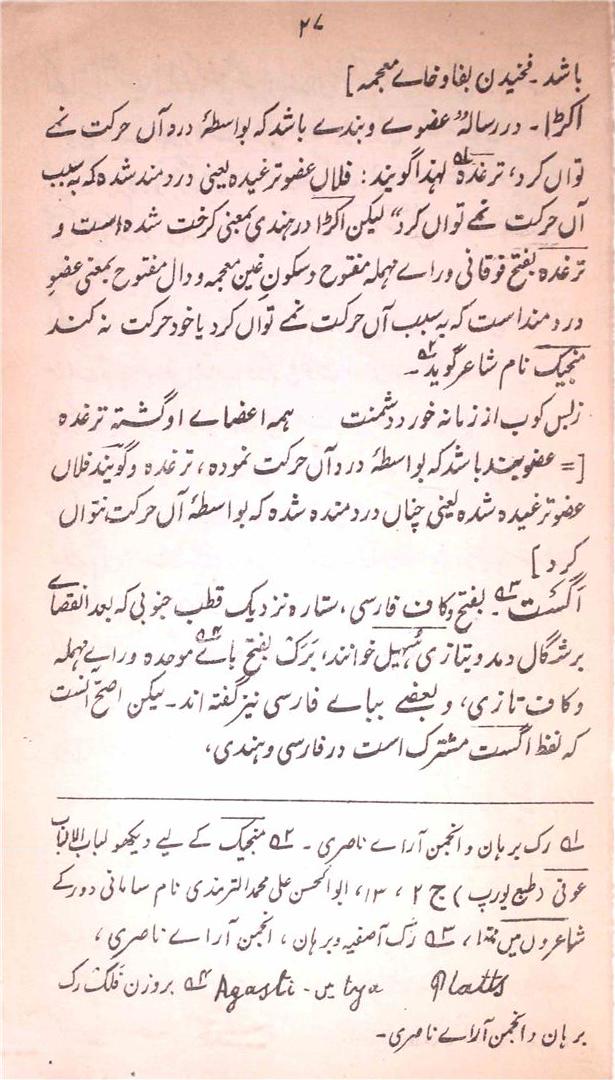 ۲۷
باشد۔ فخیدن بفا و خاے معجمہ]
اکڑا۔ در رسالہ "عضوے و بندے باشد کہ بواسطۂ درد آں حرکت نمے
تواں کرد، ترغدہ۵۱ لہٰذا گویند: فلاں عضو ترغیدہ یعنی دردمند شدہ کہ بہ سبب
آں حرکت نمے تواں کرد" لیکن اکڑا در ہندی بمعنی کرخت شدہ است و
ترغدہ بفتح فوقانی و راے مہملہ مفتوح و سکونِ غین معجمہ و دال مفتوح بمعنی عضوِ
دردمند است کہ بہ سبب آں حرکت نمے تواں کرد یا خود حرکت نہ کند
منجیک نام شاعر گوید۵۲۔
زبس کوب از زمانہ خورد دشمنت ہمہ اعضاے او گشتہ ترغدہ
[= عضو بند باشد کہ بواسطۂ درد آں حرکت نمودہ، ترغدہ و گویند فلاں
عضو ترغیدہ شدہ یعنی چناں دردمندہ شدہ کہ بواسطۂ آں حرکت نتواں
کرد]
اَگَست۵۳۔ بفتح و کاف فارسی، ستارہ نزدیک قطب جنوبی کہ بعد انقضاے
برشگال دمد و بتازی سُہیل خوانند، بَرَک۵۴ بفتح باے موحدہ و راے مہملہ
و کاف تازی، و بعضے بباے فارسی نیز گفتہ اند۔ لیکن اصح آنست
کہ لفظ اگست مشترک است در فارسی و ہندی،
۵۱ رک برہان و انجمن آراے ناصری۔ ۵۲ منجیک کے لیے دیکھو لباب الالباب
عوفی (طبع یورپ) ج ۲، ۱۳، ابوالحسن علی محمد الترمذی نام سامانی دور کے
شاعروں میں تھا، ۵۳ رک آصفیہ و برہان، انجمن آراے ناصری،
Platts میں tya - Agasti ۵۴ بروزن فلک رک
برہان و انجمن آراے ناصری۔